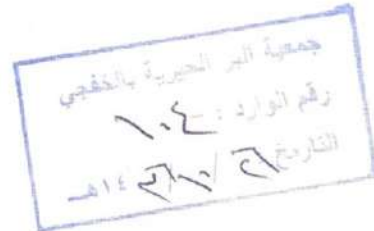 جمعية البر الخيرية بالخفجي
رقم الوارد : ١٠٤
التاريخ / ١٠ / ١٤ هـ